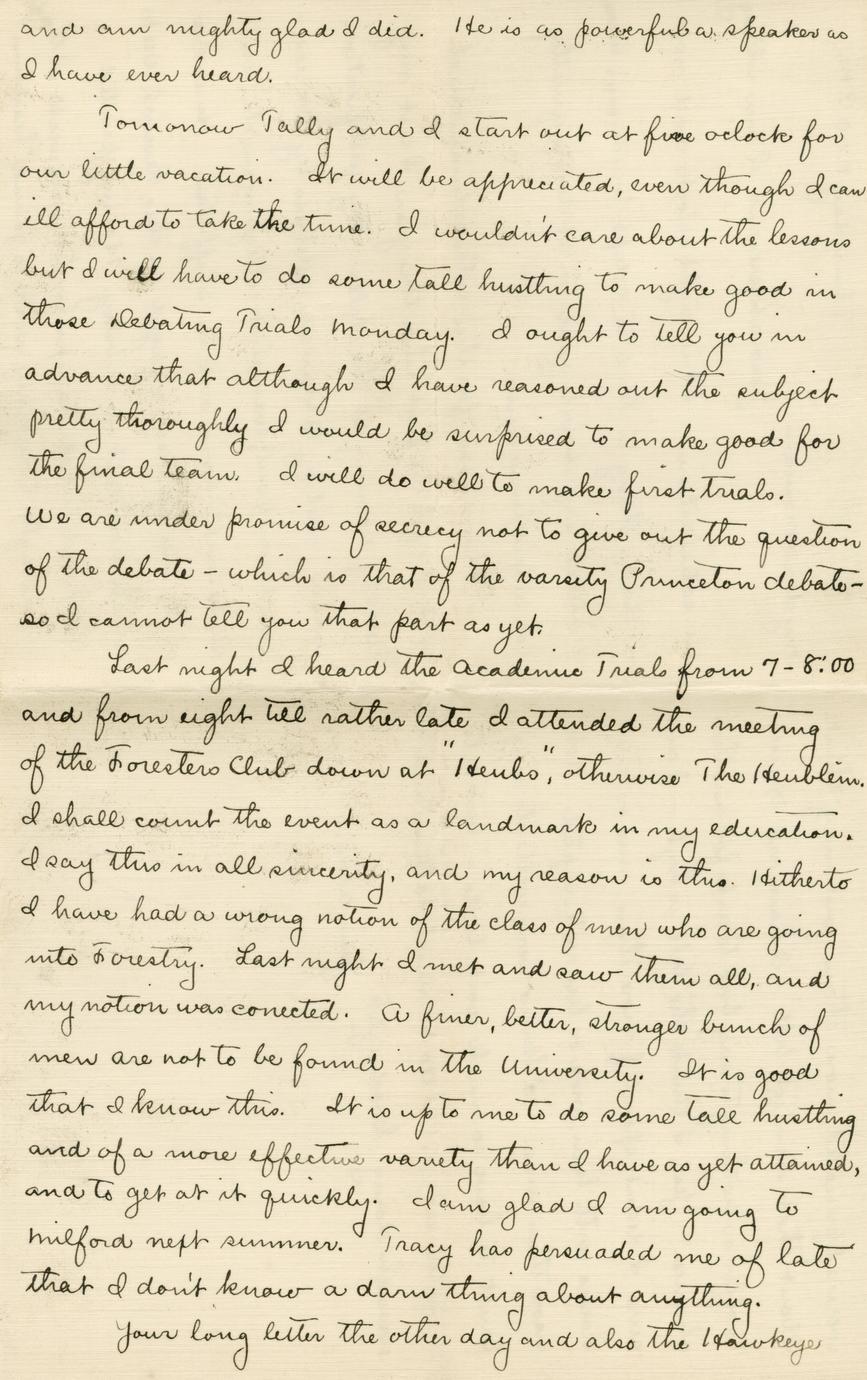 and am mighty glad I did. He is as powerful a speaker as
I have ever heard.
Tomorrow Tally and I start out at five oclock for
our little vacation. It will be appreciated, even though I can
ill afford to take the time. I wouldn't care about the lessons
but I will have to do some tall hustling to make good in
those Debating Trials Monday. I ought to tell you in
advance that although I have reasoned out the subject
pretty thoroughly I would be surprised to make good for
the final team. I will do well to make first trials.
We are under promise of secrecy not to give out the question
of the debate – which is that of the varsity Princeton debate –
so I cannot tell you that part as yet.
Last night I heard the Academic Trials from 7 - 8:00
and from eight till rather late I attended the meeting
of the Foresters Club down at "Heubs", otherwise The Heublein.
I shall count the event as a landmark in my education.
I say this in all sincerity, and my reason is this. Hitherto
I have had a wrong notion of the class of men who are going
into Forestry. Last night I met and saw them all, and
my notion was corrected. A finer, better, stronger bunch of
men are not to be found in the University. It is good
that I know this. It is up to me to do some tall hustling
and of a more effective variety than I have as yet attained,
and to get at it quickly. I am glad I am going to
Milford next summer. Tracy has persuaded me of late
that I don't know a darn thing about anything.
Your long letter the other day and also the Hawkeye